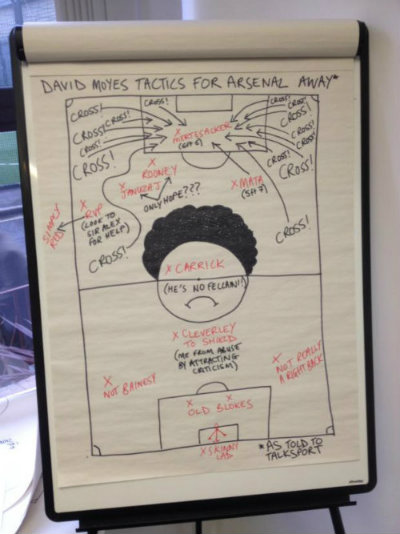 DAVID MOYES TACTICS FOR ARSENAL AWAY*
CROSS!
CROSS!
CROSS!
CROSS!
CROSS!
CROSS!
CROSS!
CROSS!
X
MERTESACKER
(6ft 6)
CROSS!
CROSS!
CROSS!
CROSS!
CROSS!
CROSS!
CROSS!
X
ROONEY
X
JANUZAJ
X
MATA
(5ft 7)
ONLY HOPE???
X
RVP
(LOOK TO
SIR ALEX
FOR HELP)
SIMPLY
RED
CROSS!
CROSS!
X CARRICK
(HE'S NO FELLAINI!)
X CLEVERLEY
TO SHIELD
(ME FROM ABUSE
BY ATTRACTING
CRITICISM)
X
NOT BAINESY
X
NOT REALLY
A RIGHT BACK
X X
OLD BLOKES
X SKINNY
LAD
*AS TOLD TO
TALKSPORT